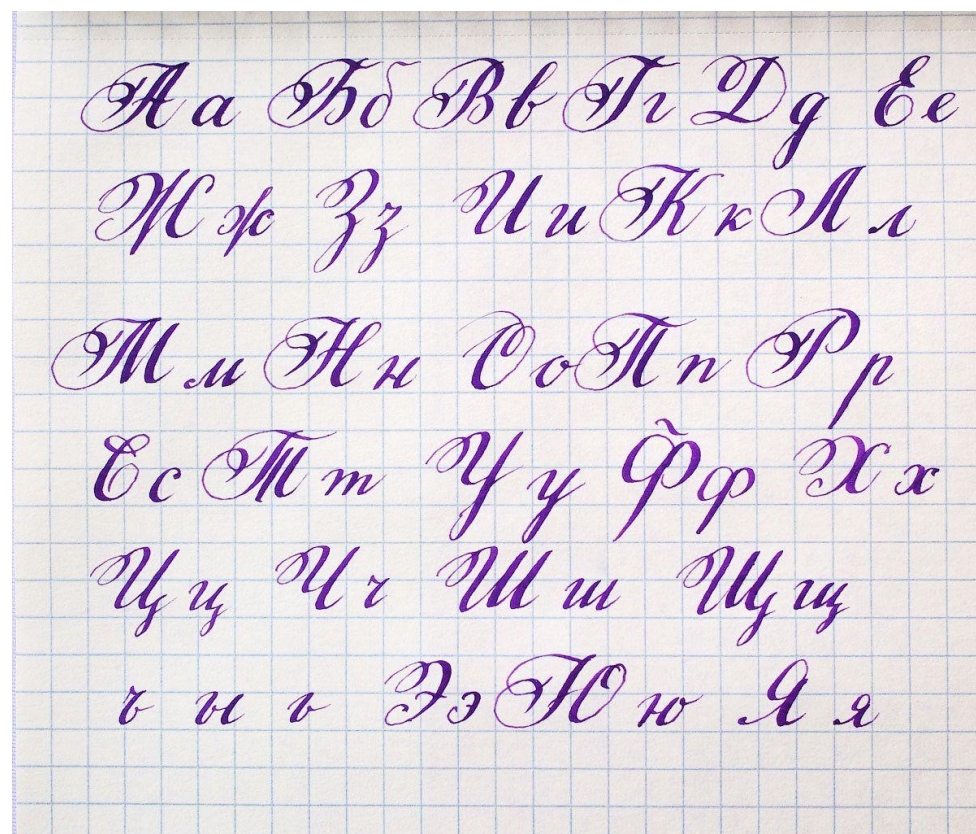 Аа Бб Вв Гг Дд Ее
Жж Зз Ии Кк Лл
Мм Нн Оо Пп Рр
Сс Тт Уу Фф Хх
Цц Чч Шш Щщ
ъ ы ь Ээ Юю Яя